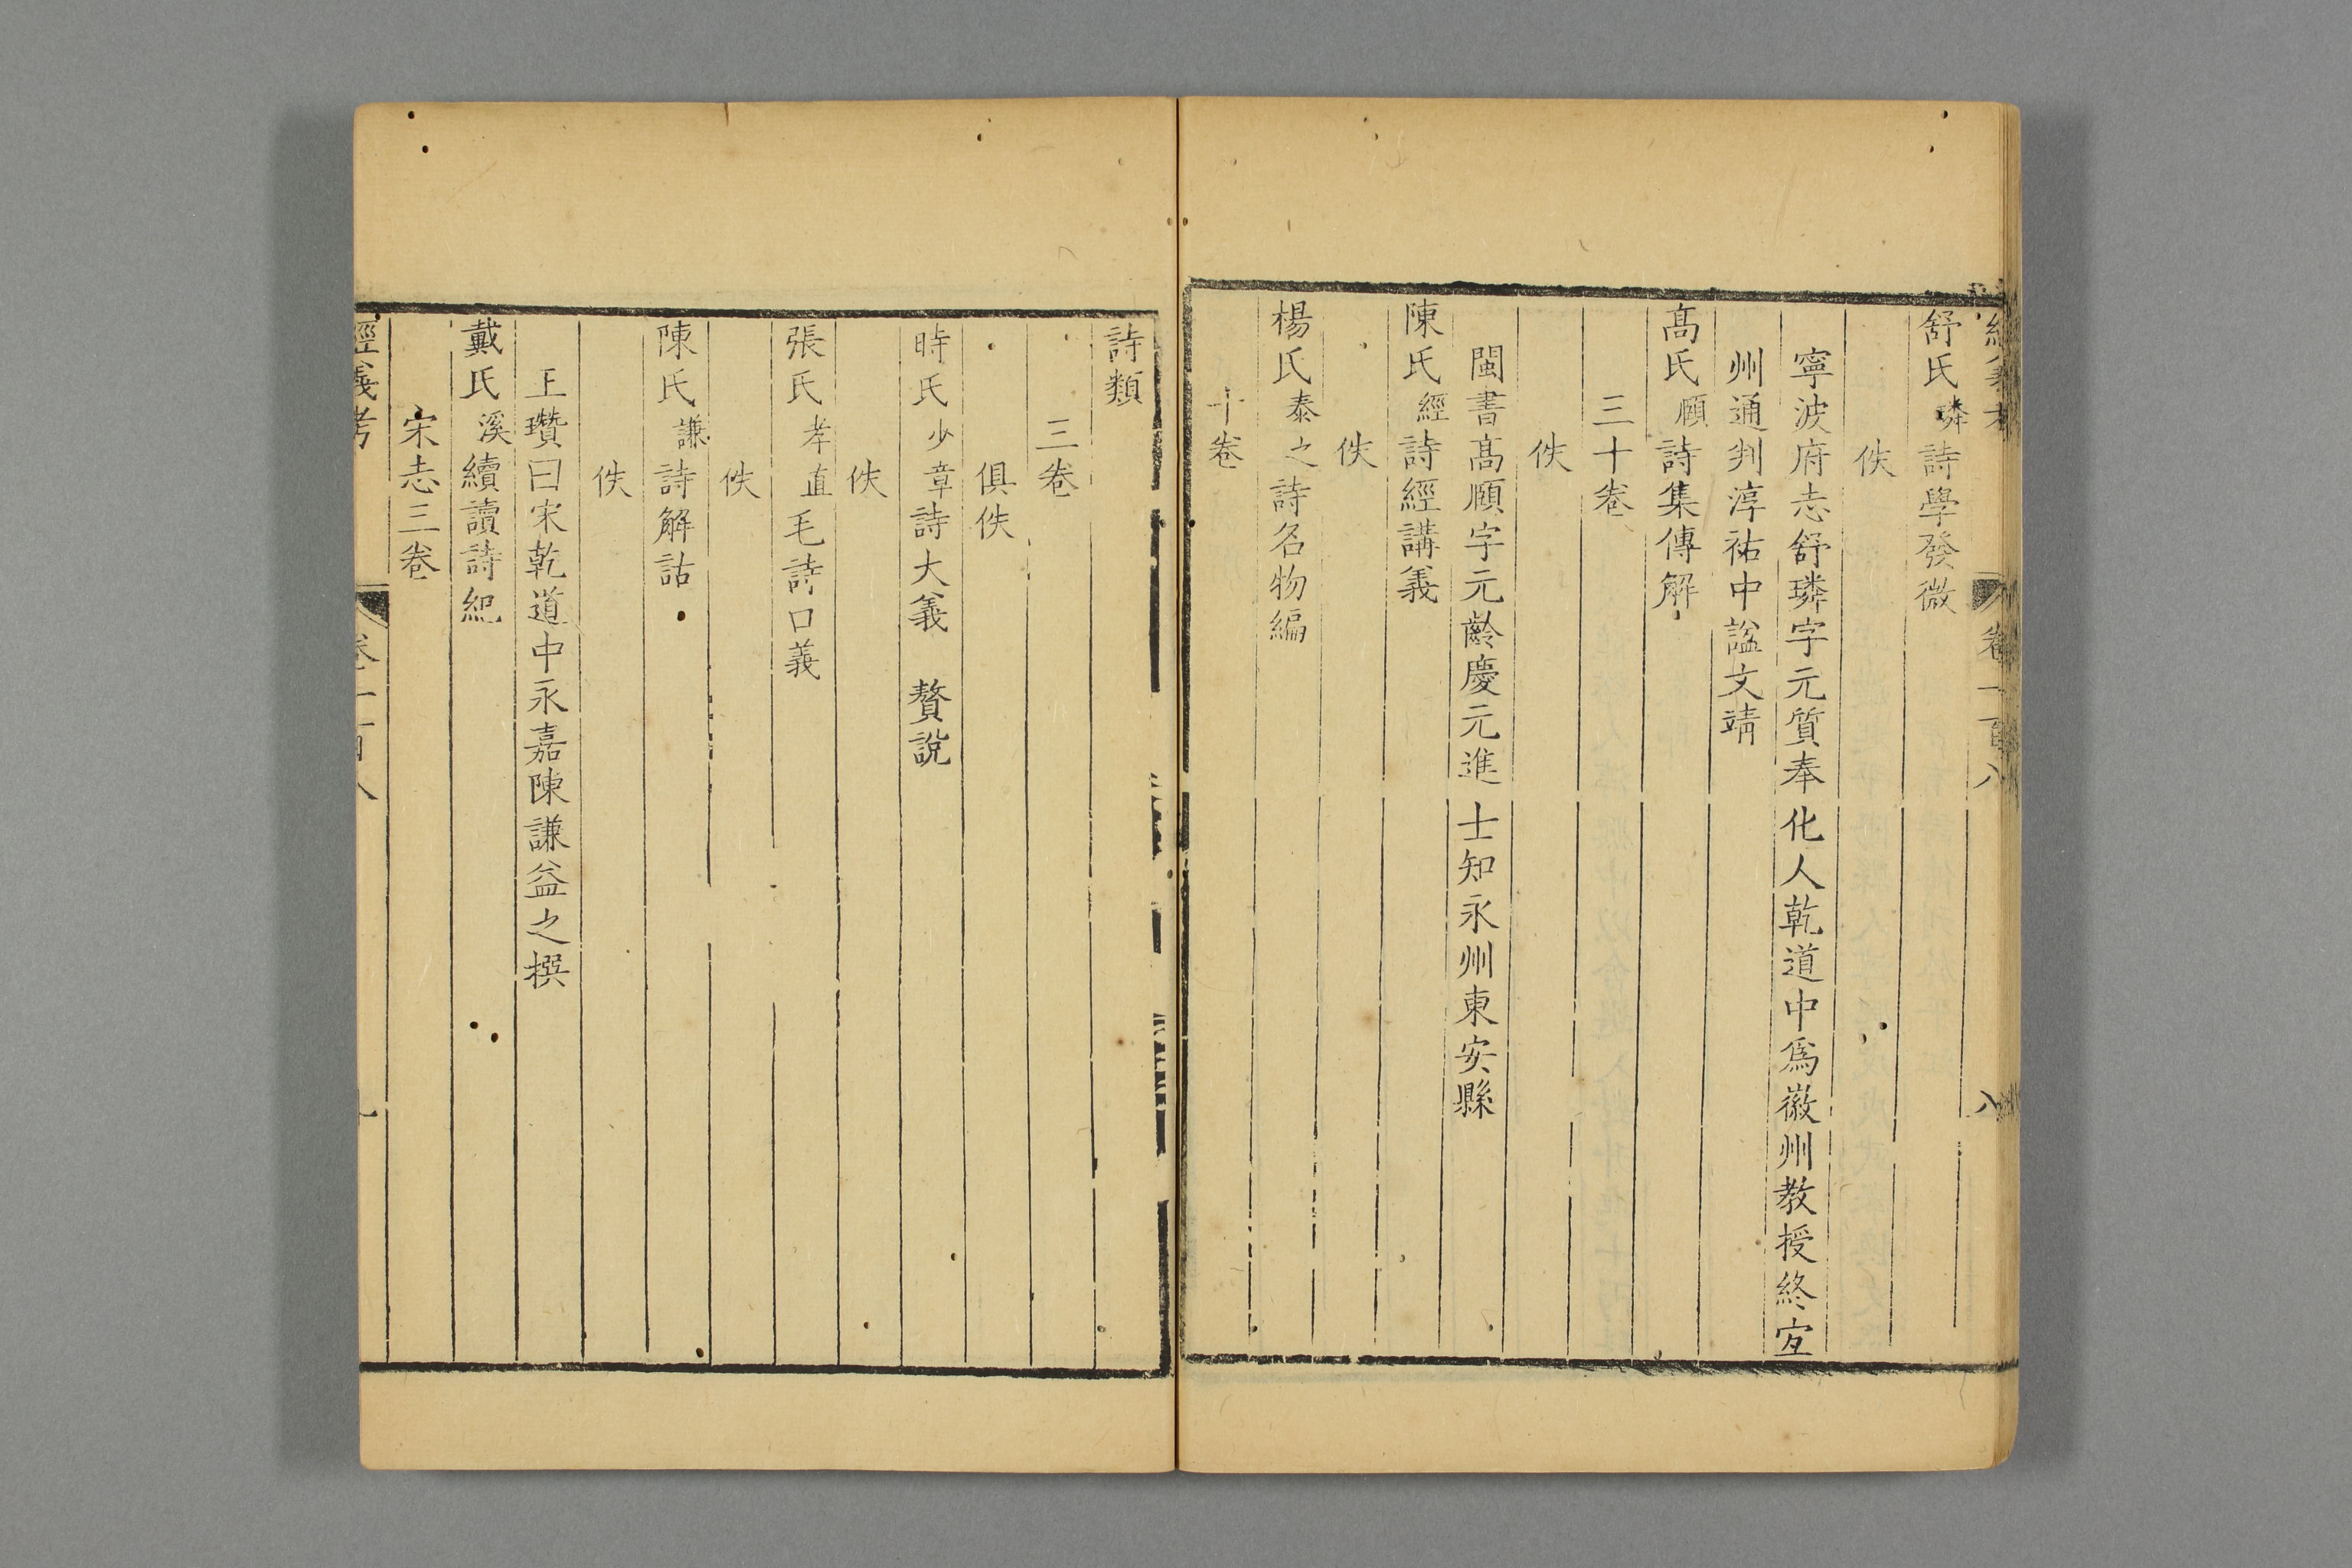 經義考 卷一百八 八
舒氏璘詩學發微
佚
寧波府志舒璘字元質奉化人乾道中爲徽州教授終宐
州通判淳祐中諡文靖
髙氏頤詩集傳解
三十卷
佚
閩書髙頤字元齡慶元進士知永州東安縣
陳氏經詩經講義
佚
楊氏泰之詩名物編
十卷
詩類
三卷
俱佚
時氏少章詩大義 贅説
佚
張氏孝直毛詩口義
佚
陳氏謙詩解詁
佚
王瓚曰宋乾道中永嘉陳謙益之撰
戴氏溪續讀詩紀
宋志三卷
經義考 卷一百八